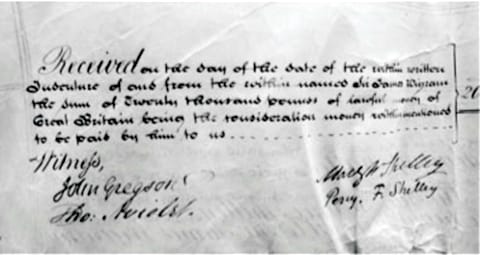 Received on the day of the date of the within written
Indenture of and from the within named Sir James Wigram
the sum of Twenty thousand pounds of lawful money of
Great Britain being the consideration money withinmentioned
to be paid by him to us
20
Witness,
John Gregson
Tho:
Mary W Shelley
Percy. F. Shelley